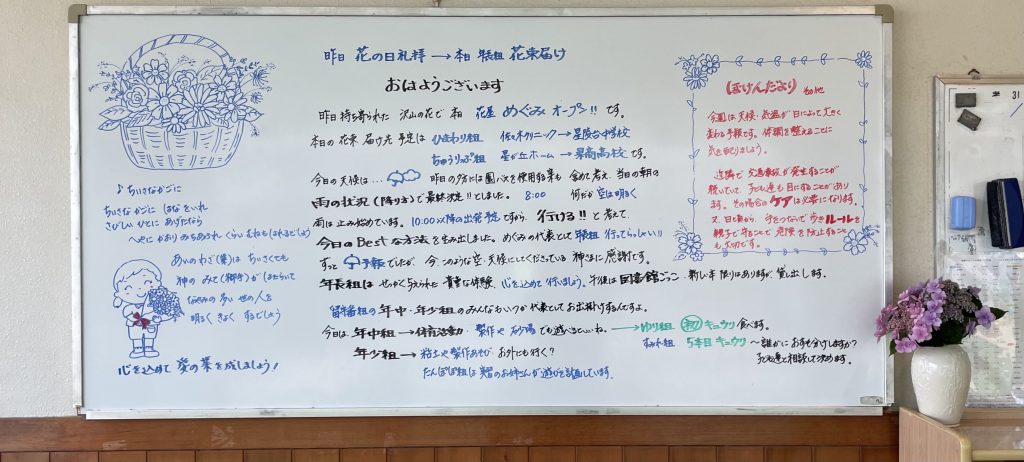 昨日 花の日礼拝 → 本日 年長組 花束届け
おはようございます
昨日 持ち寄られた 沢山の花で 本日 花屋 めぐみ オープン!! です。
本日の 花束 届け先 予定は ひまわり組 佐々木クリニック → 星陵台中学校
ちゅうりっぷ組 星が丘ホーム → 星商高校 です。
今日の天候は… 昨日の夕方には園バスを使用する案も 含めて考え、当日の朝の
雨の状況(降り方)で最終決定!!としました。 8:00 何だか空は明るく
雨は止み始めています。10:00以降の出発予定ですから、行ける!! と考えて、
今日のBestな方法を生み出しました。めぐみの代表として 年長組 行ってらっしゃい!!
ずっと 予報でしたが、今、このような空・天候にしてくださっている 神さまに感謝です。
年長組は せっかく与えられた 貴重な体験 心を込めて 行いましょう。午後は 図書館ごっこ・新しい本 限りはありますが、貸し出します。
留守番組の 年中・年少組のみんなもいつか代表として お出掛けするんですよ。
今日は 年中組 → 体育活動・製作や砂場でも遊べるといいね。 → ゆり組 初 キュウリ 食べます。
すみれ組 5本目 キュウリ 〜 誰かにおすそ分けしますか?
年少組 → 粘土や製作あそび お外にも行く? 子ども達と相談して決めます。
たんぽぽ組は 実習のお姉さんが遊びを計画しています。
♪ ちいさなかごに
ちいさな かごに はなを いれ
さびしい ひとに あげたなら
へやに かおり みちあふれ くらい むねも はれるでしょう
あいの わざ(業)は ちいさくても
神の みて(御手)が はたらいて
なやみの 多い 世の 人を
明るく きよく するでしょう
心を込めて 愛の業を成しましょう!
ほけんだより
今週は天候・気温が日によって大きく
変わる予報です。体調を整えることに
気を配りましょう。
近隣で交通事故が発生することが
続いていて、子ども達も目にすることがあり
ます。その場合のケアは必要になります。
又、日頃から、手をつないで歩くルールを
親子で守ることで 危険を防止することも
大切です。
31